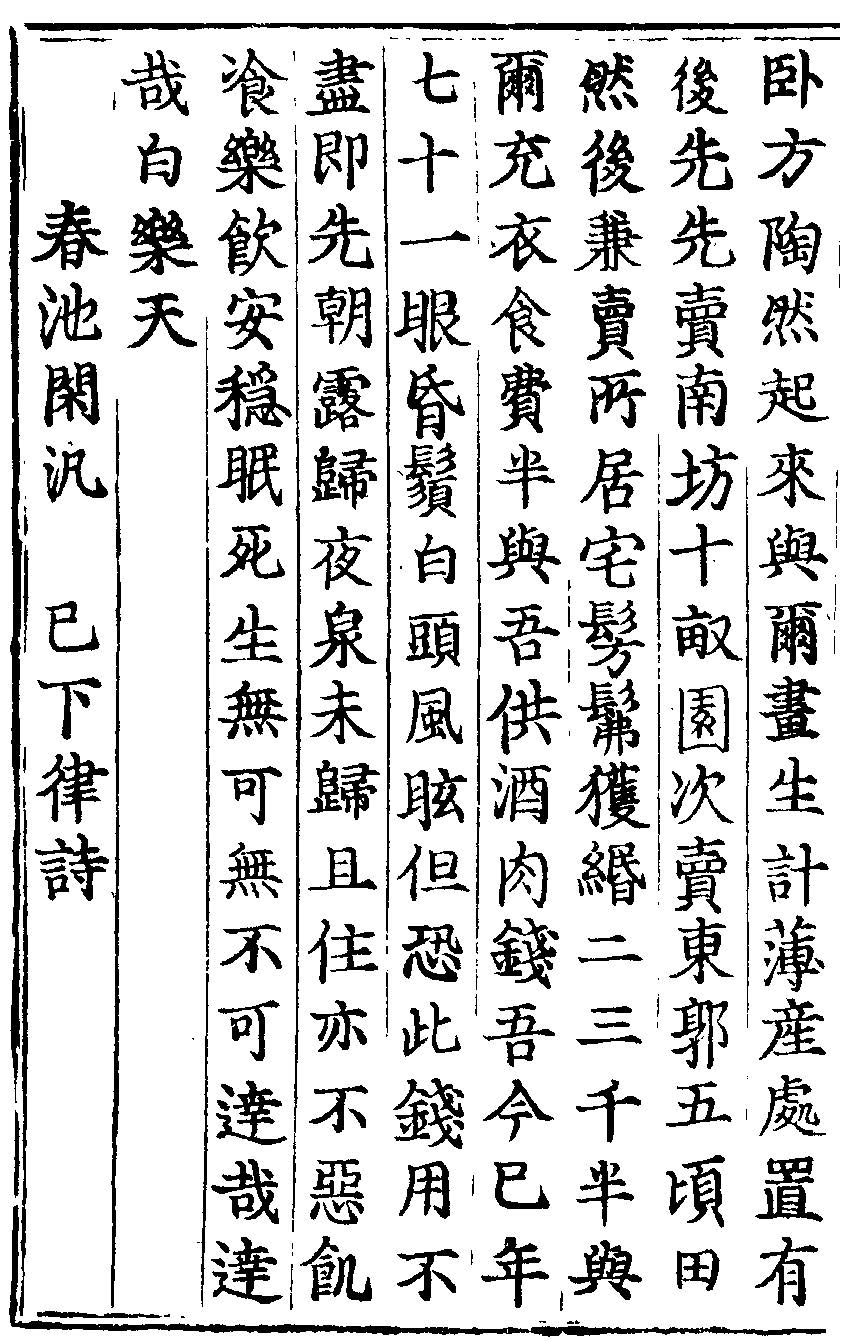 卧方陶然起來與爾畫生計薄産處置有
後先先賣南坊十畝園次賣東郭五頃田
然後兼賣所居宅髣髴獲緡二三千半與
爾充衣食費半與吾供酒肉錢吾今已年
七十一眼昏鬚白頭風眩但恐此錢用不
盡即先朝露歸夜泉未歸且住亦不惡飢
飡樂飲安穩眠死生無可無不可達哉達
哉白樂天
春池閑汎 已下律詩